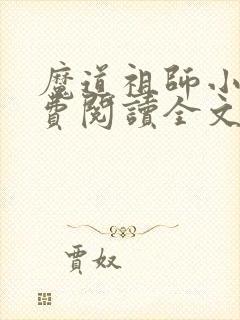 魔道祖師小
費閱讀全文
賈奴